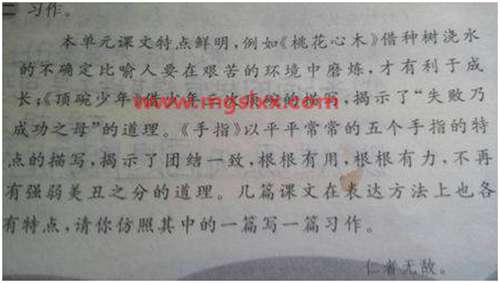 二 习作。
本单元课文特点鲜明，例如《桃花心木》借种树浇水
的不确定比喻人要在艰苦的环境中磨炼，才有利于成
长；《顶碗少年》借少年三次顶碗的描写，揭示了“失败乃
www.mgshxx.com
成功之母”的道理。《手指》以平平常常的五个手指的特
点的描写，揭示了团结一致，根根有用，根根有力，不再
有强弱美丑之分的道理。几篇课文在表达方法上也各
有特点，请你仿照其中的一篇写一篇习作。
仁者无敌。